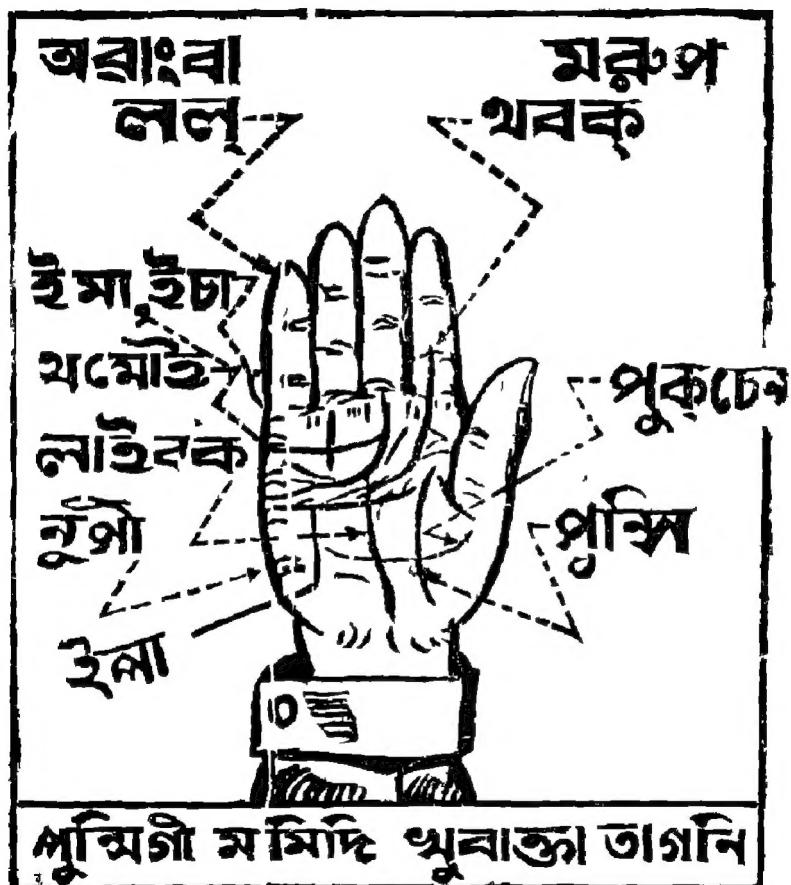 অৱাংবা লল্
মরুপ থবক্
ইমা,ইচা
থমোই
লাইবক
নুপী
ইপা
পুন্সি
পুন্সিগী মমিদি খুবাক্তা তাগনি